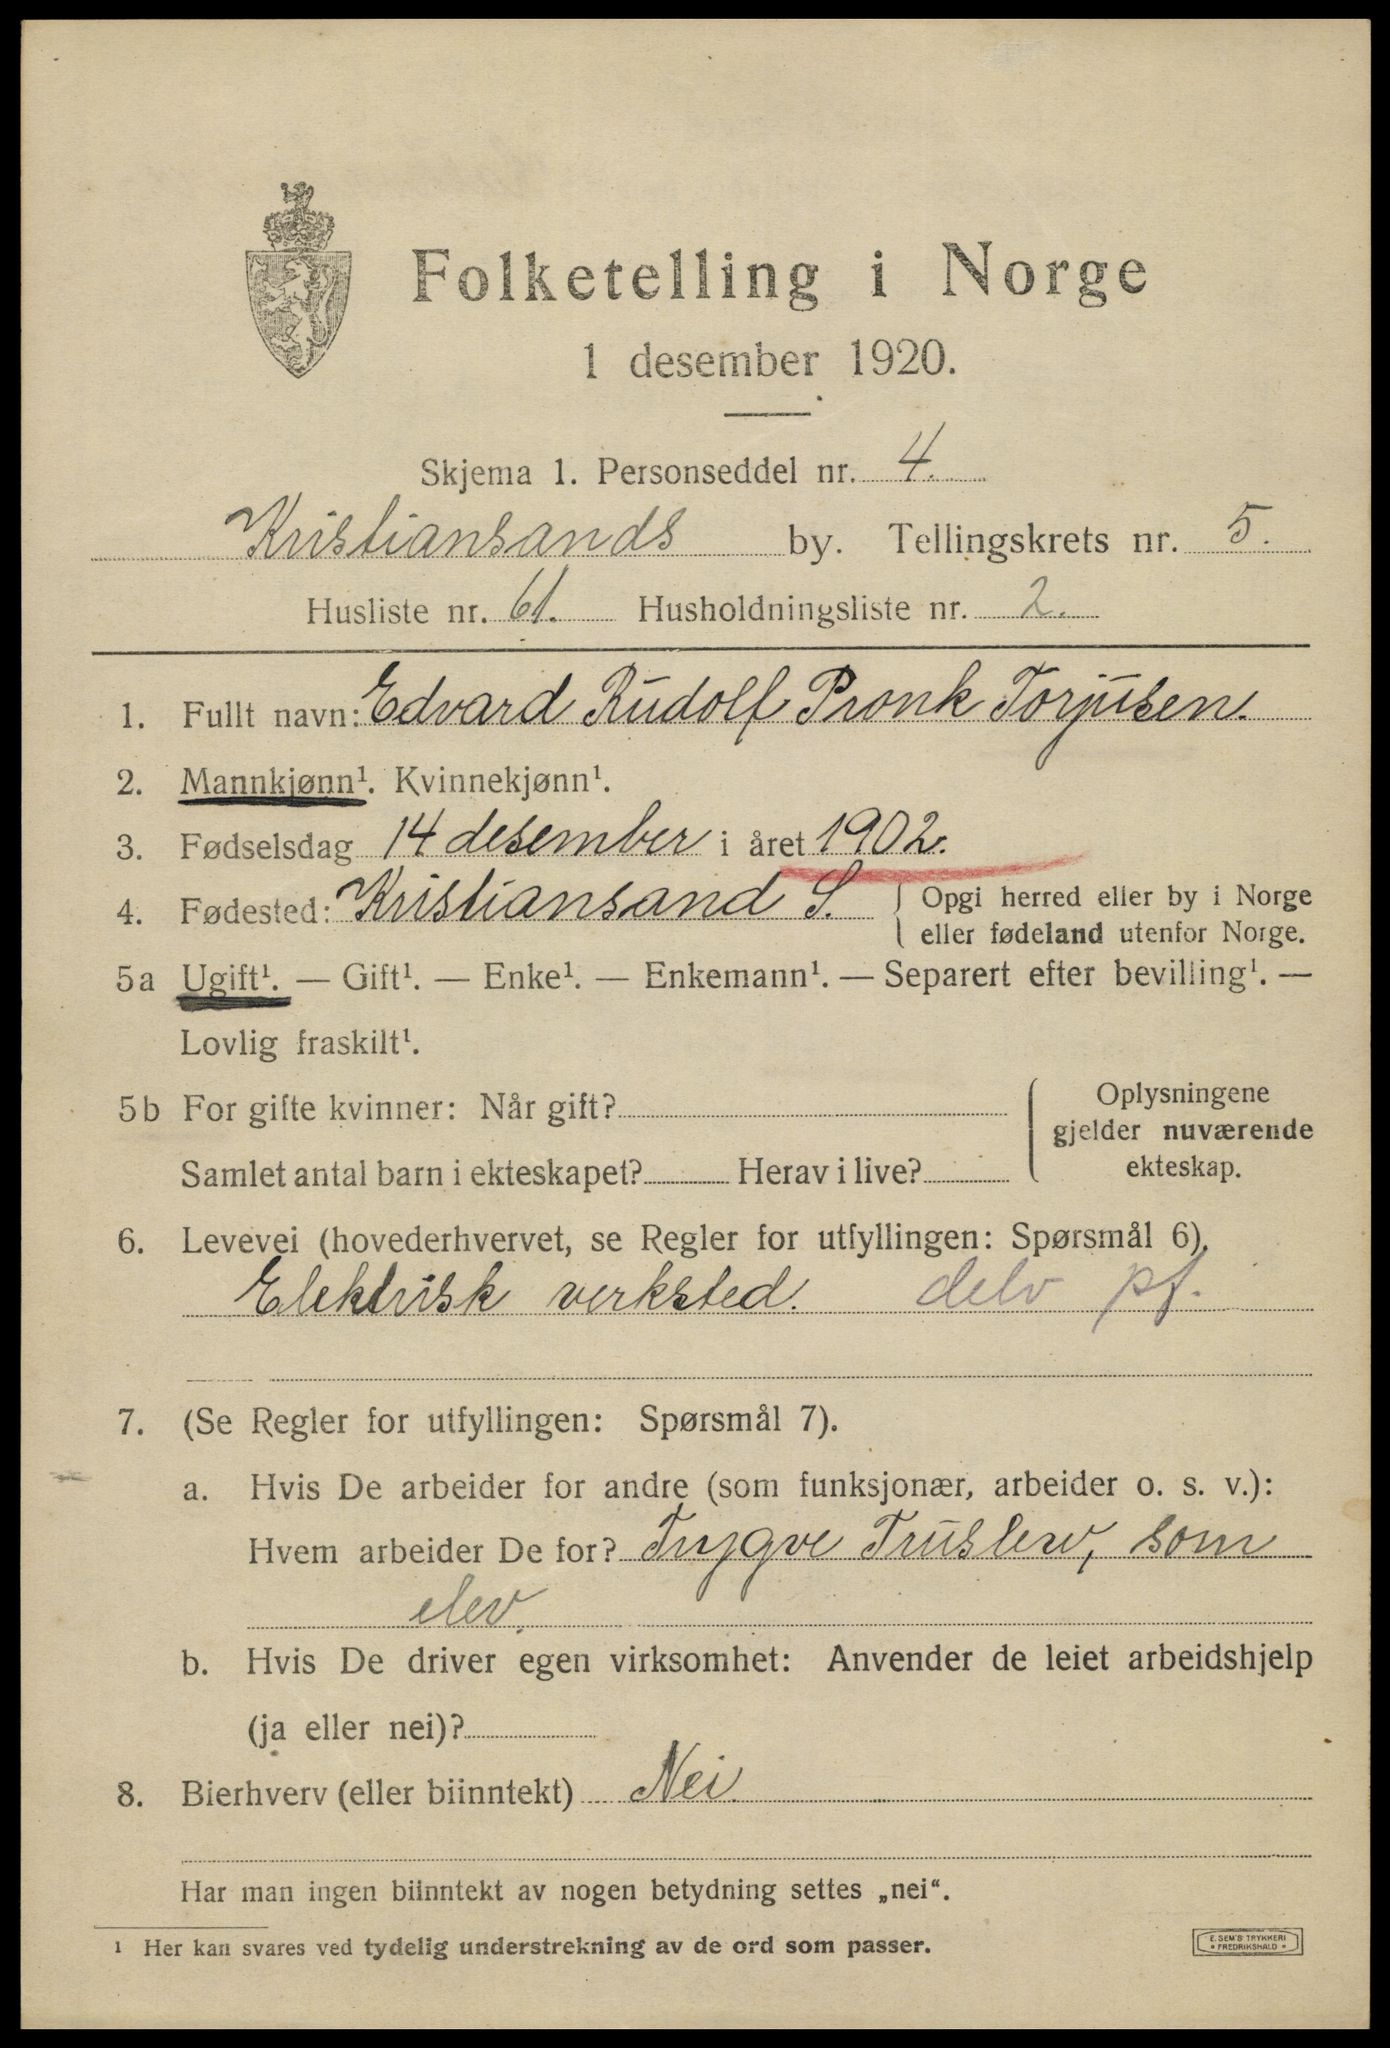 Folketelling i Norge
1 desember 1920.
Skjema 1. Personseddel nr. 4.
Kristiansands by. Tellingskrets nr. 5.
Husliste nr. 61. Husholdningsliste nr. 2.
1. Fullt navn: Edvard Rudolf Pronk Torjusen.
2. Mannkjønn¹. Kvinnekjønn¹.
3. Fødselsdag 14 desember i året 1902.
4. Fødested: Kristiansand S. Opgi herred eller by i Norge
eller fødeland utenfor Norge.
5a Ugift¹. — Gift¹. — Enke¹. — Enkemann¹. — Separert efter bevilling¹. —
Lovlig fraskilt¹.
5b For gifte kvinner: Når gift? Oplysningene
gjelder nuværende
Samlet antal barn i ekteskapet? Herav i live? ekteskap.
6. Levevei (hovederhvervet, se Regler for utfyllingen: Spørsmål 6).
Elektrisk verksted. delv pf.
7. (Se Regler for utfyllingen: Spørsmål 7).
a. Hvis De arbeider for andre (som funksjonær, arbeider o. s. v.):
Hvem arbeider De for? Trygve Truslew, som
elev
b. Hvis De driver egen virksomhet: Anvender de leiet arbeidshjelp
(ja eller nei)?
8. Bierhverv (eller biinntekt) Nei
Har man ingen biinntekt av nogen betydning settes „nei“.
¹ Her kan svares ved tydelig understrekning av de ord som passer.
E. SEM'S TRYKKERI
FREDRIKSHALD